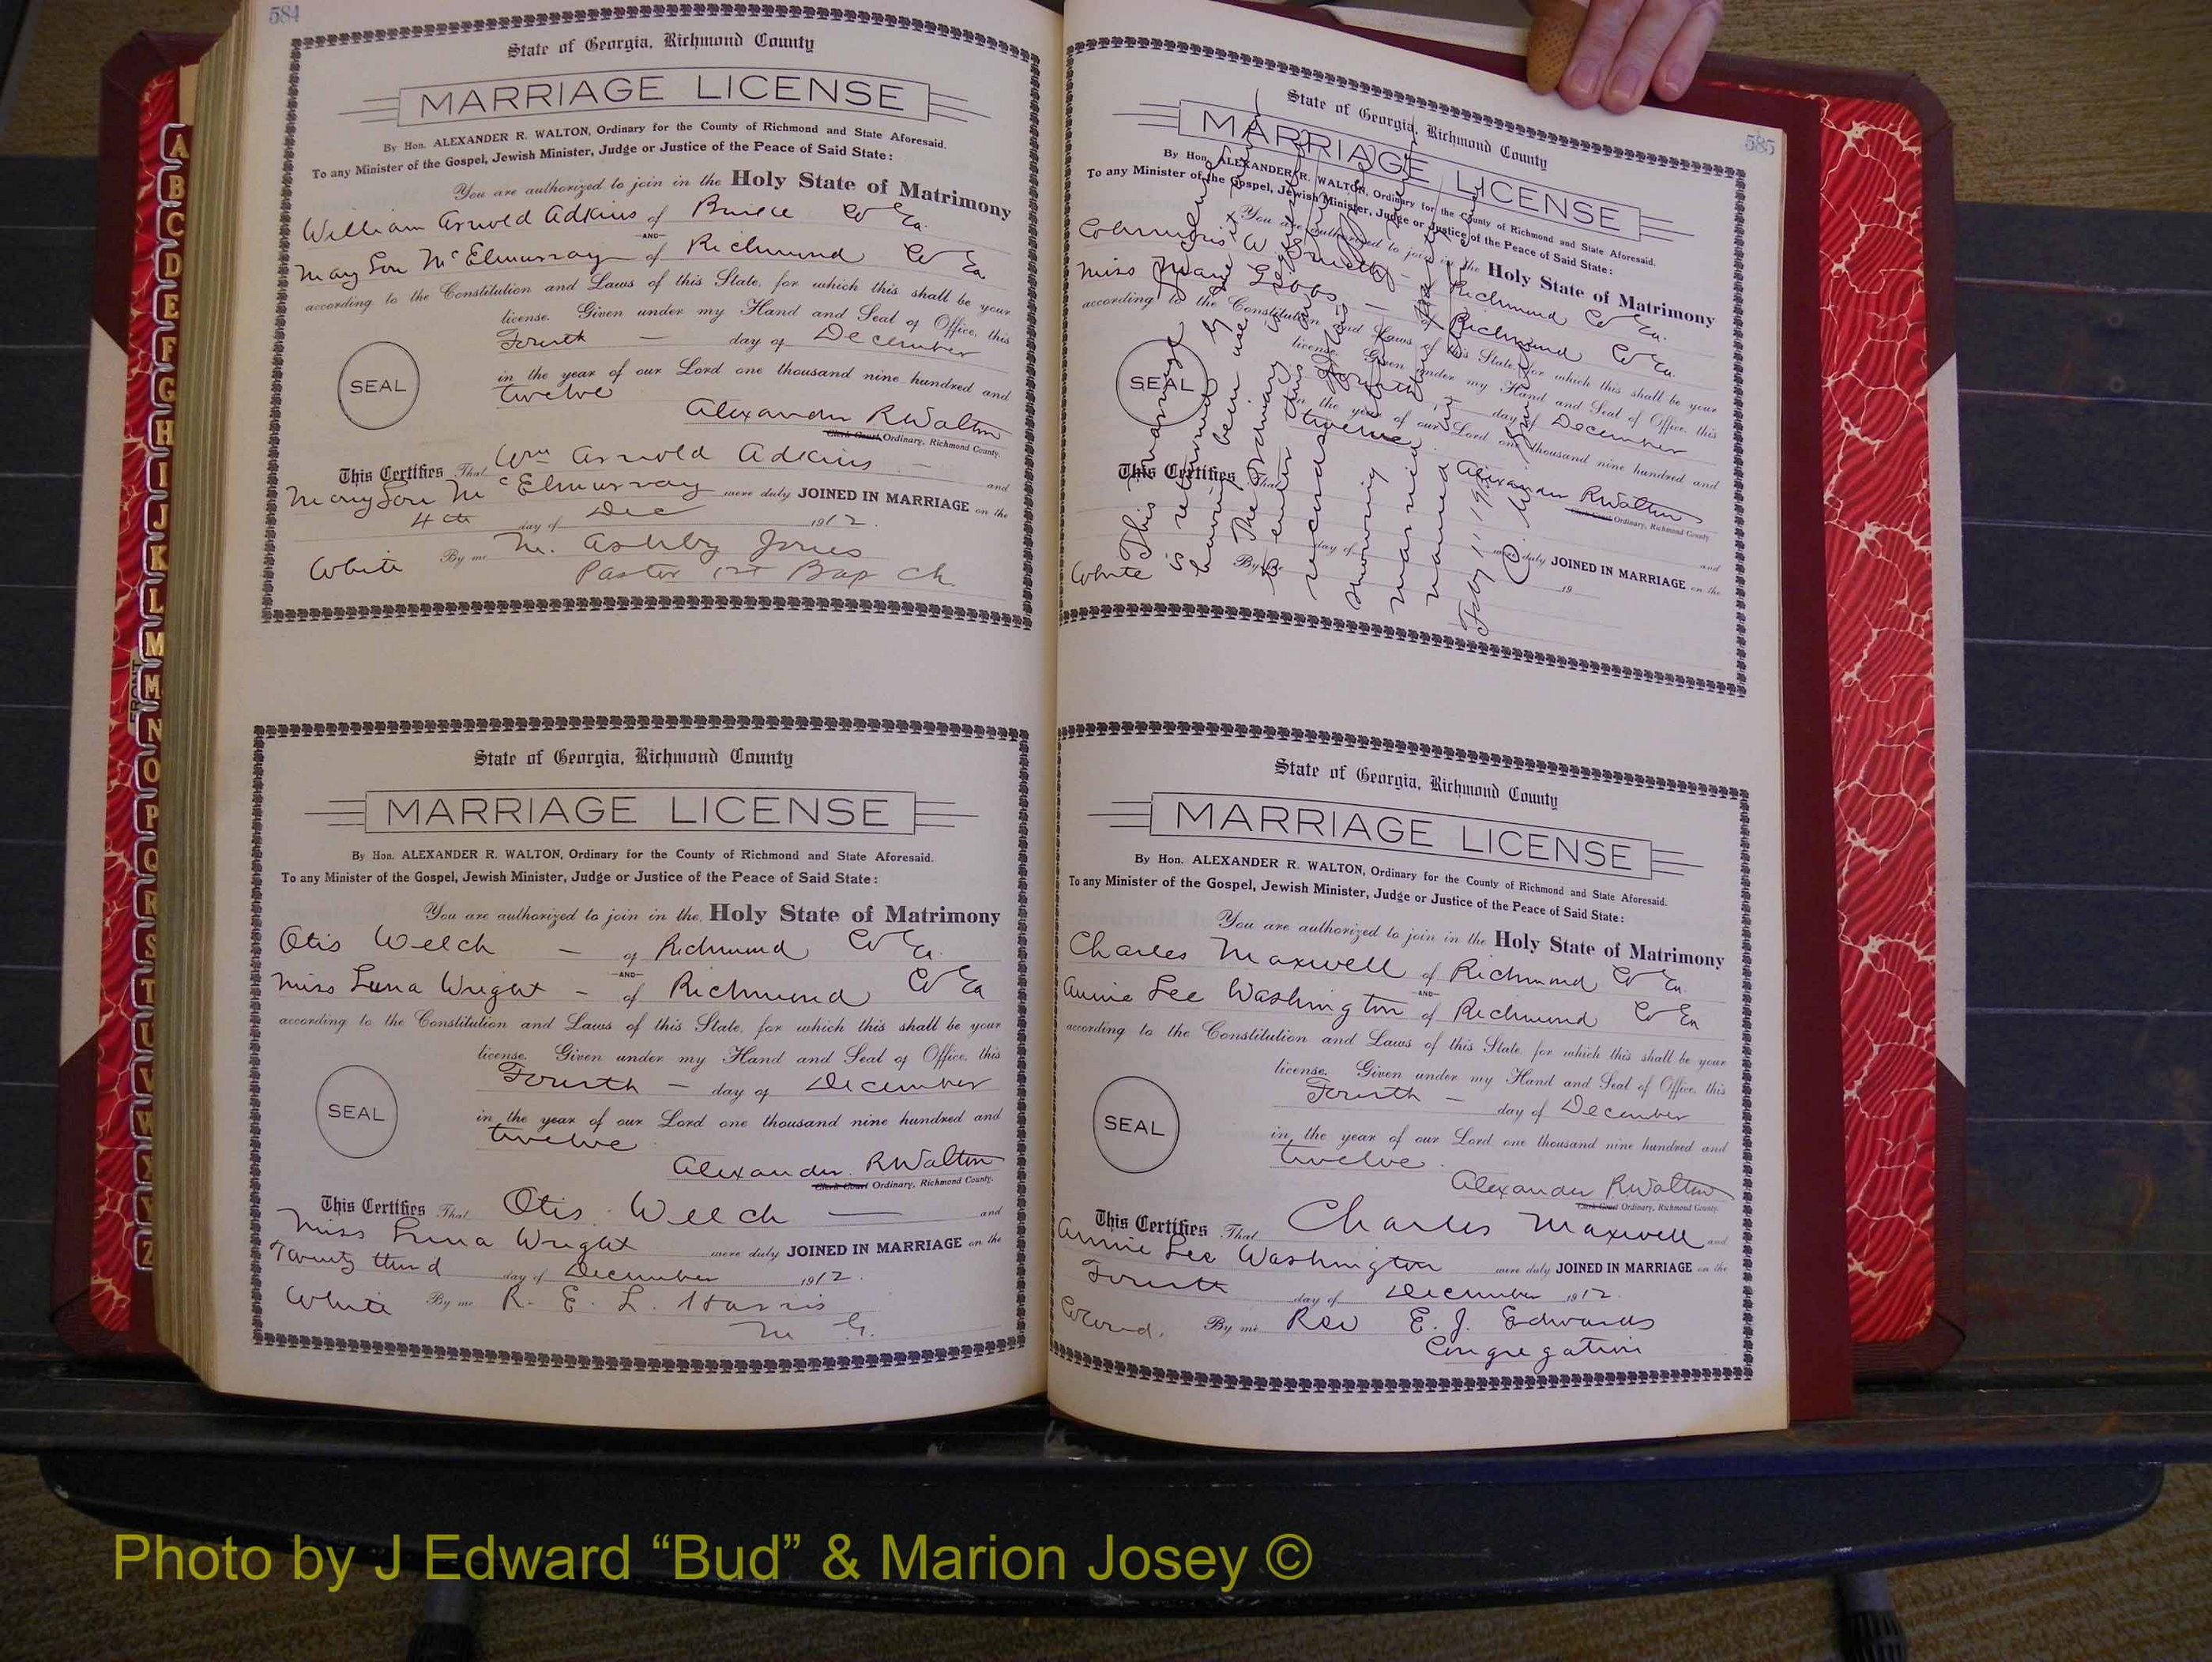 584
State of Georgia, Richmond County
MARRIAGE LICENSE
By Hon. ALEXANDER R. WALTON, Ordinary for the County of Richmond and State Aforesaid.
To any Minister of the Gospel, Jewish Minister, Judge or Justice of the Peace of Said State:
You are authorized to join in the Holy State of Matrimony
William Arnold Adkins of Co Ga.
—AND—
May Lou McElmurray of Richmond Co Ga
according to the Constitution and Laws of this State, for which this shall be your
license. Given under my Hand and Seal of Office, this
Fourth — day of December
in the year of our Lord one thousand nine hundred and
twelve
SEAL
Alexander R Walton
Clerk Court Ordinary, Richmond County.
This Certifies That Wm Arnold Adkins — and
May Lou McElmurray were duly JOINED IN MARRIAGE on the
4th day of Dec 1912.
White By me M. Ashby Jones
Pastor 1st Bap Ch.
State of Georgia, Richmond County
MARRIAGE LICENSE
By Hon. ALEXANDER R. WALTON, Ordinary for the County of Richmond and State Aforesaid.
To any Minister of the Gospel, Jewish Minister, Judge or Justice of the Peace of Said State:
You are authorized to join in the Holy State of Matrimony
Otis Welch — of Richmond Co Ga.
—AND—
Miss Luna Wright — of Richmond Co Ga
according to the Constitution and Laws of this State, for which this shall be your
license. Given under my Hand and Seal of Office, this
Fourth — day of December
in the year of our Lord one thousand nine hundred and
twelve
SEAL
Alexander R Walton
Clerk Court Ordinary, Richmond County.
This Certifies That Otis Welch — and
Miss Luna Wright were duly JOINED IN MARRIAGE on the
Twenty third day of December 1912.
White By me R. E. L. Harris
M G.
585
State of Georgia, Richmond County
MARRIAGE LICENSE
By Hon. ALEXANDER R. WALTON, Ordinary for the County of Richmond and State Aforesaid.
To any Minister of the Gospel, Jewish Minister, Judge or Justice of the Peace of Said State:
You are authorized to join in the Holy State of Matrimony
Columbus W — Richmond Co Ga.
Miss Marie Gibbs — of Richmond Co Ga.
according to the Constitution and Laws of this State, for which this shall be your
license. Given under my Hand and Seal of Office, this
Fourth day of December
in the year of our Lord one thousand nine hundred and
twelve
SEAL
Alexander R Walton
Clerk Court Ordinary, Richmond County
This Certifies That and
were duly JOINED IN MARRIAGE on the
day of 19
White By me
This marriage
is returned
having been
The Ordinary
records
showing
married
named
State of Georgia, Richmond County
MARRIAGE LICENSE
By Hon. ALEXANDER R. WALTON, Ordinary for the County of Richmond and State Aforesaid.
To any Minister of the Gospel, Jewish Minister, Judge or Justice of the Peace of Said State:
You are authorized to join in the Holy State of Matrimony
Charles Maxwell of Richmond Co Ga.
—AND—
Annie Lee Washington of Richmond Co Ga
according to the Constitution and Laws of this State, for which this shall be your
license. Given under my Hand and Seal of Office, this
Fourth — day of December
in the year of our Lord one thousand nine hundred and
twelve.
SEAL
Alexander R Walton
Clerk Court Ordinary, Richmond County.
This Certifies That Charles Maxwell and
Annie Lee Washington were duly JOINED IN MARRIAGE on the
Fourth day of December 1912.
Colored. By me Rev E. J. Edwards
Congregation
A
B
C
D
E
F
G
H
I
J
K
L
M
Mc
N
O
P
Q
R
S
T
U
V
W
X
Y
Z
Photo by J Edward “Bud” & Marion Josey ©